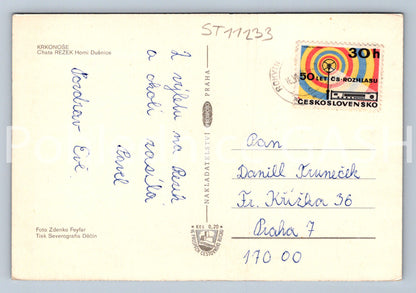 KRKONOŠE
Chata REZEK Horní Dušnice
ST11233
30h
50 LET ČS. ROZHLASU
ČESKOSLOVENSKO
Z výletu na Rezek
a okolí zasílá
Pavel
Pozdrav Evě
NAKLADATELSTVÍ
PRAHA
Pan
Danill Kruneček
Fr. Křížka 36
Praha 7
170 00
Foto Zdenko Feyfar
Tisk Severografia Děčín
Kčs 0,20